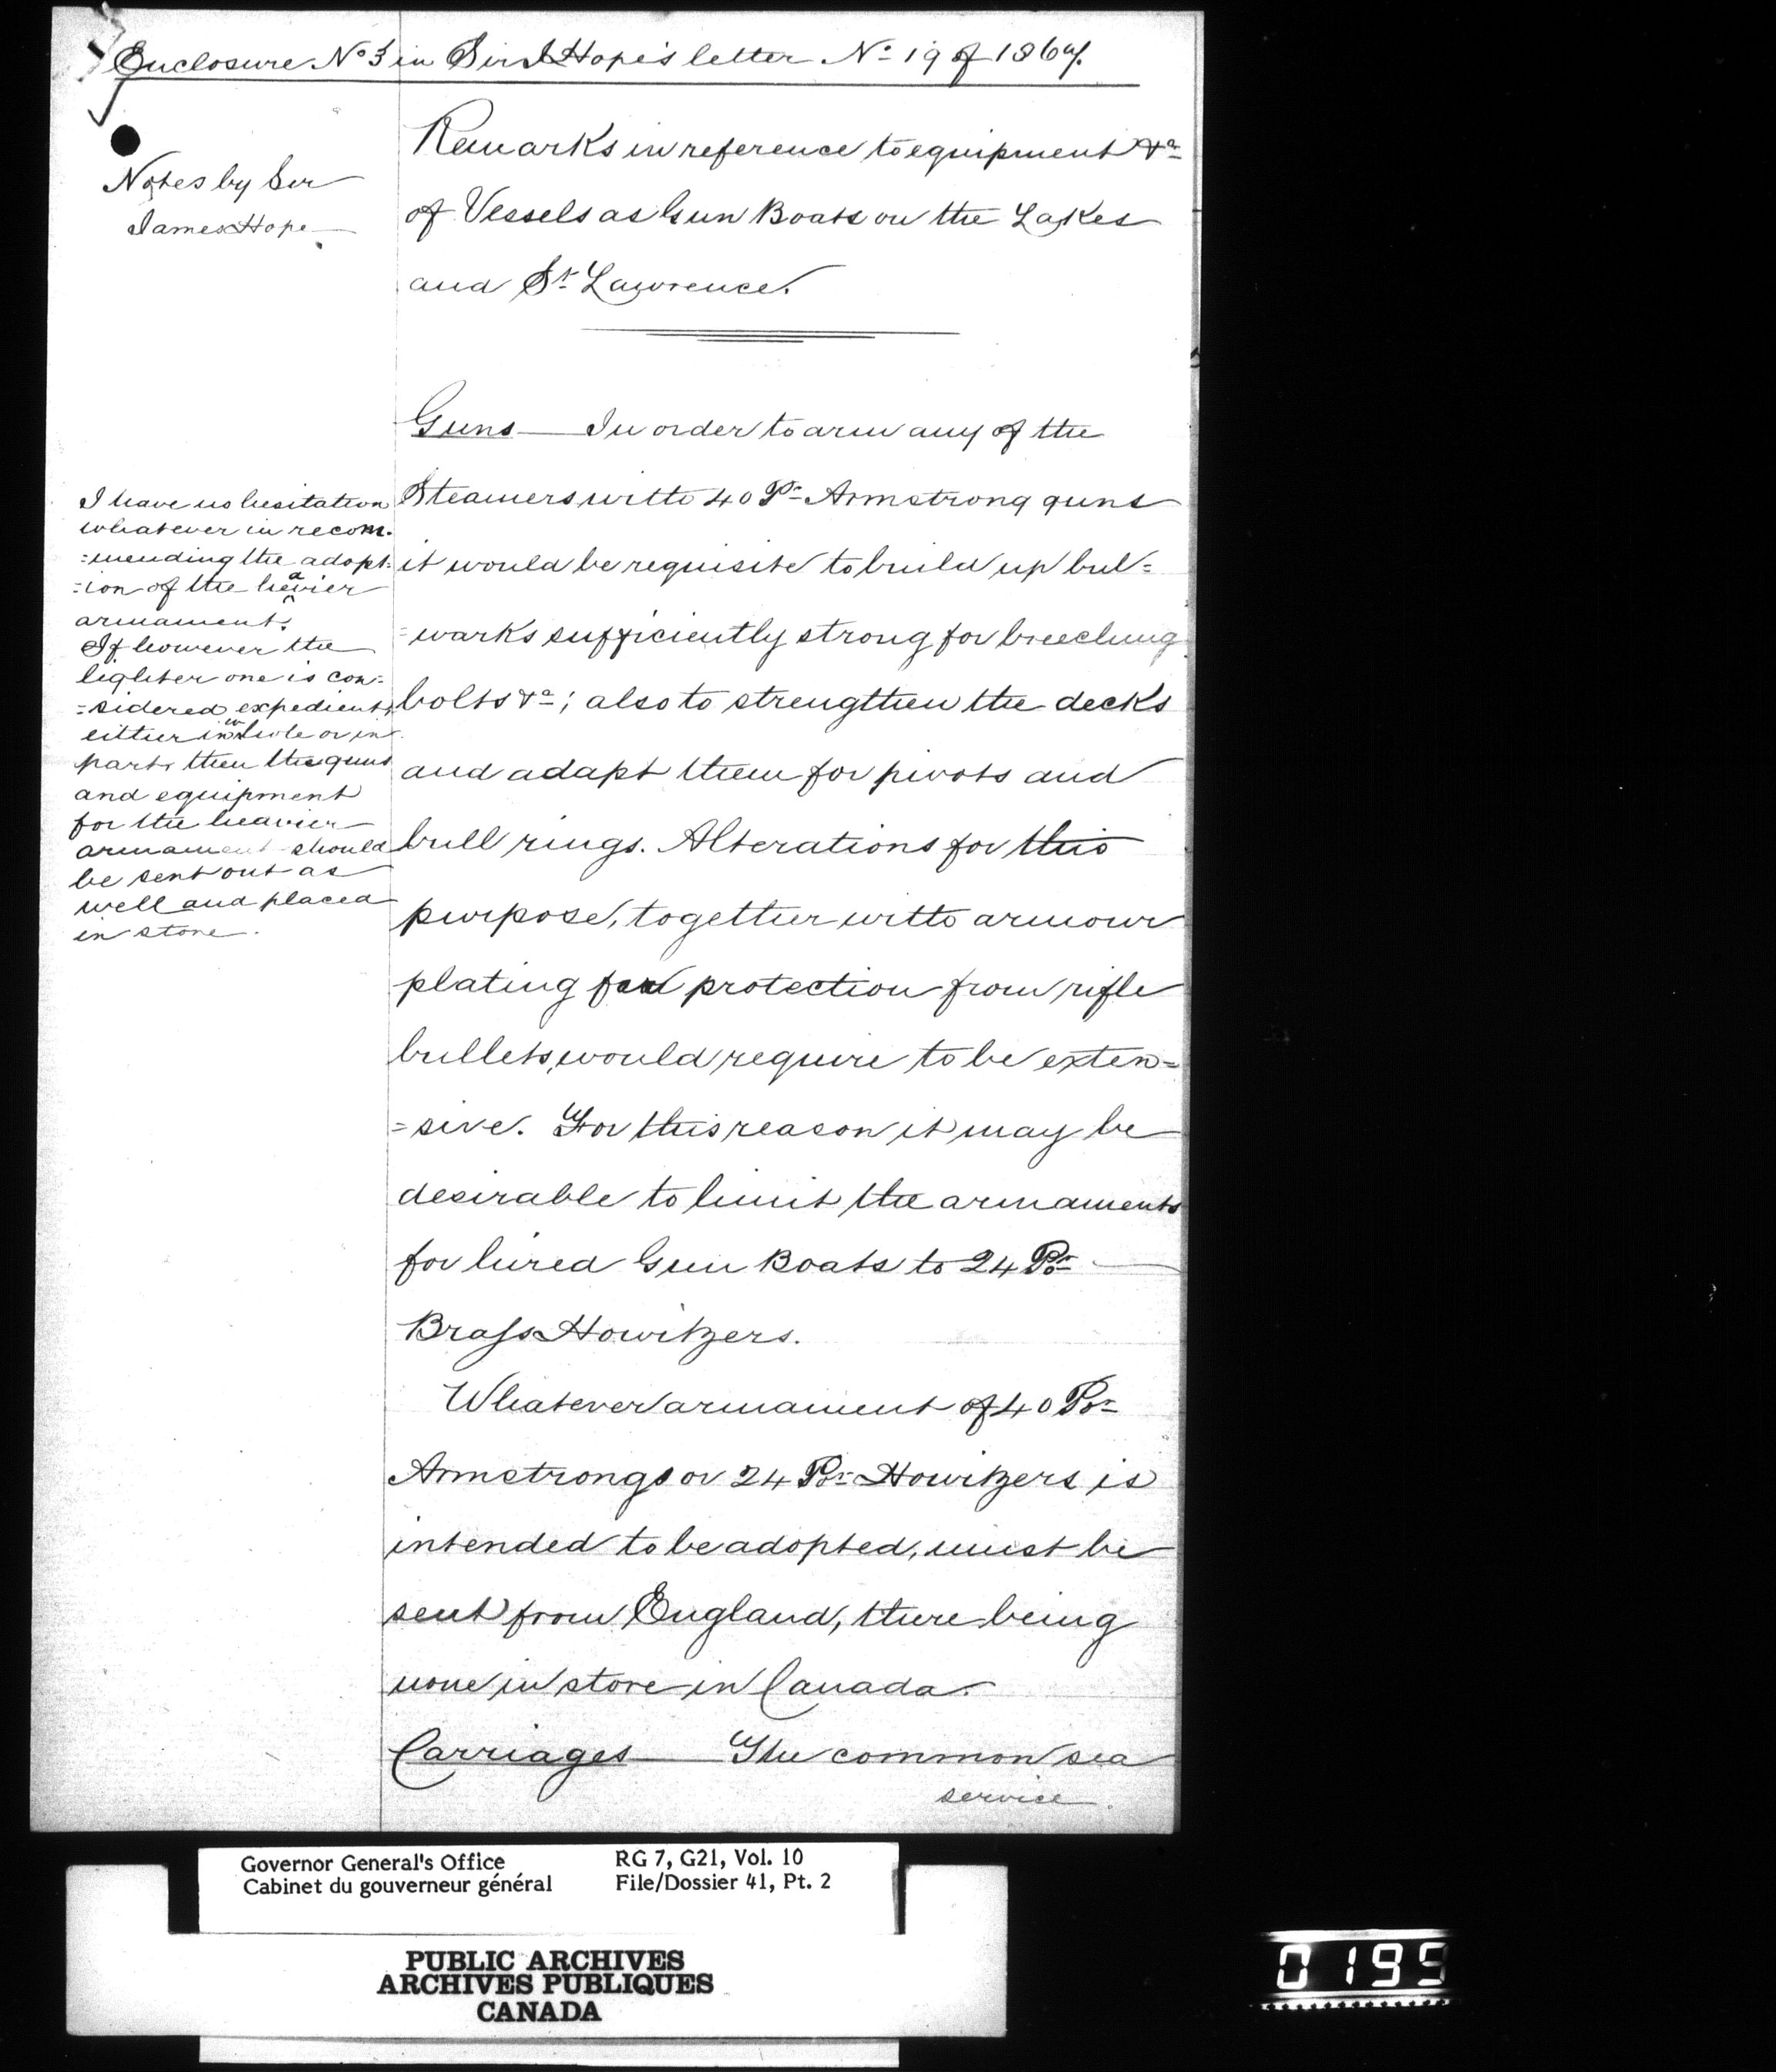 Enclosure No 3 in Sir J Hope's letter No 19 of 1867.
Notes by Sir
James Hope
Remarks in reference to equipment &a
of Vessels as Gun Boats on the Lakes
and St Lawrence.
I have no hesitation
whatever in recom-
=mending the adopt-
=ion of the heavier
armament.
If however the
lighter one is con-
=sidered expedient,
either in whole or in
part, then the guns
and equipment
for the heavier
armament should
be sent out as
well and placed
in store.
Guns — In order to arm any of the
Steamers with 40 Pr Armstrong guns
it would be requisite to build up bul=
=warks sufficiently strong for breeching
bolts &a; also to strengthen the decks
and adapt them for pivots and
bull rings. Alterations for this
purpose, together with armour
plating for protection from rifle
bullets, would require to be exten=
=sive. For this reason it may be
desirable to limit the armaments
for hired Gun Boats to 24 Por
Brass Howitzers.
Whatever armament of 40 Por
Armstrongs or 24 Por Howitzers is
intended to be adopted, must be
sent from England, there being
none in store in Canada.
Carriages — The common sea
service
Governor General's Office RG 7, G21, Vol. 10
Cabinet du gouverneur général File/Dossier 41, Pt. 2
PUBLIC ARCHIVES
ARCHIVES PUBLIQUES
CANADA
0199